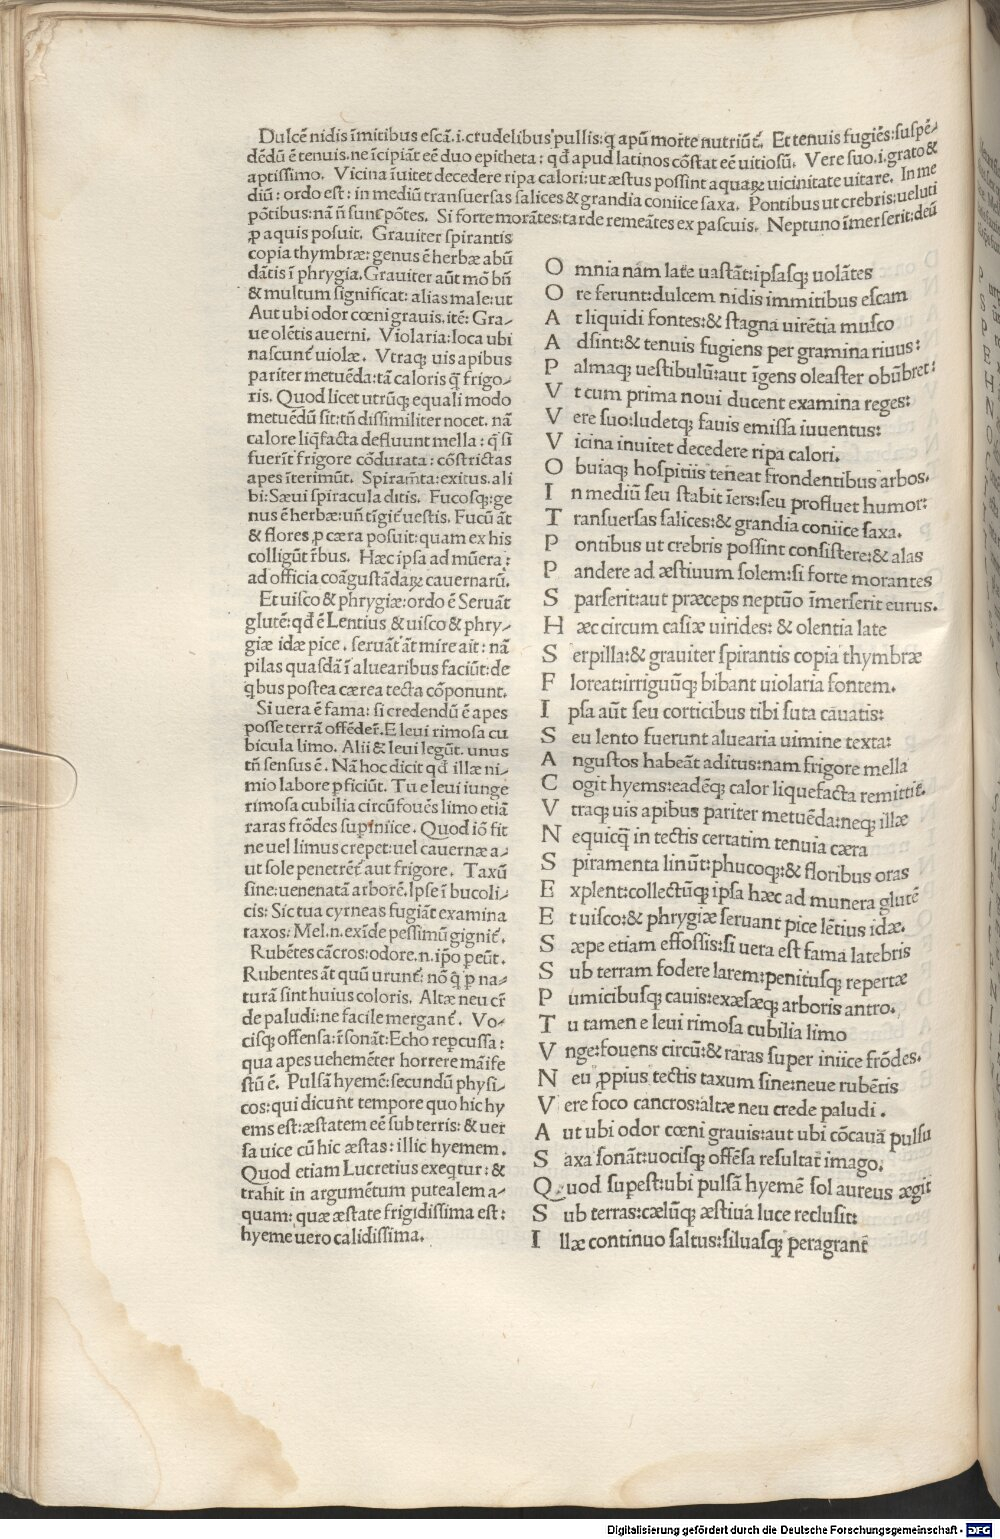 Dulcē nidis īmitibus escā.i.crudelibus pullis:q apū morte nutriūt̄. Et tenuis fugiēs:suspē-
dēdū ē tenuis.ne īcipiāt eē duo epitheta: qđ apud latinos cōstat eē uitiosū. Vere suo.i.grato &
aptissimo. Vicina īuitet decedere ripa calori:ut æstus possint aquaꝝ uicinitate uitare. In me
diū: ordo est: in mediū transuersas salices & grandia coniice saxa. Pontibus ut crebris:ueluti
pōtibus:nā ñ sunt pōtes. Si forte morātes:tarde remeātes ex pascuis. Neptuno īmerserit:deū
ꝓ aquis posuit. Grauiter spirantis
copia thymbræ: genus ē herbæ abū
dātis ī phrygia. Grauiter aūt mō bñ
& multum significat: alias male: ut
Aut ubi odor cœni grauis. itē: Gra-
ue olētis auerni. Violaria: loca ubi
nascunt̄ uiolæ. Vtraqꝫ uis apibus
pariter metuēda: tā caloris q̄ frigo-
ris. Quod licet utrūqꝫ equali modo
metuēdū sit: tñ dissimiliter nocet. nā
calore liqfacta defluunt mella: q̄ si
fuerīt frigore cōdurata: cōstrictas
apes īterimūt. Spiram̄ta: exitus. ali
bi: Sæui spiracula ditis. Fucosqꝫ: ge
nus ē herbæ: uñ tīgīt̄ uestis. Fucū āt
& flores ꝓ cæra posuit: quam ex his
colligūt r̄bus. Hæc ipsa ad mūera:
ad officia coāgustādaꝝ cauernarū.
Et uisco & phrygiæ: ordo ē Seruāt
glutē: qđ ē Lentius & uisco & phry-
giæ idæ pice. seruāt̄ āt mire ait: nā
pilas quasdā ī aluearibus faciūt: de
qbus postea cærea tecta cōponunt.
Si uera ē fama: si credendū ē apes
posse terrā offēder̄. E leui rimosa cu
bicula limo. Alii & leui legūt. unus
tñ sensus ē. Nā hoc dicit qđ illæ ni-
mio labore ꝑficiūt. Tu e leui iunge
rimosa cubilia circū fouēs limo etiā
raras frōdes supīniice. Quod iō fit
ne uel limus crepet: uel cauernæ a-
ut sole penetrēt̄ aut frigore. Taxū
sine: uenenatā arborē. Ipse ī bucoli-
cis: Sic tua cyrneas fugiāt examina
taxos: Mel.n. exīde pessimū gignit̄.
Rubētes cācros: odore.n. ip̄o ꝑeūt.
Rubentes āt quū urunt̄: nō q̄ ꝑ na-
turā sint huius coloris. Altæ neu cr̄
de paludi: ne facile mergant̄. Vo-
cisqꝫ offensa: r̄sonāt: Echo reꝑcussa:
qua apes uehemēter horrere māife
stū ē. Pulsā hyemē: secundū physi-
cos: qui dicunt tempore quo hic hy
ems est: æstatem eē sub terris: & uer
sa uice cū hic æstas: illic hyemem.
Quod etiam Lucretius exeqtur: &
trahit in argumētum putealem a-
quam: quæ æstate frigidissima est:
hyeme uero calidissima.
O mnia nām late uastāt: ipsasqꝫ uolātes
O re ferunt: dulcem nidis immitibus escam
A t liquidi fontes: & stagna uirētia musco
A dsint: & tenuis fugiens per gramina riuus:
P almaqꝫ uestibulū: aut īgens oleaster obūbret:
V t cum prima noui ducent examina reges:
V ere suo: ludetqꝫ fauis emissa iuuentus:
V icina inuitet decedere ripa calori.
O buiaqꝫ hospitiis teneat frondentibus arbos.
I n mediū seu stabit īers: seu profluet humor:
T ransuersas salices: & grandia coniice saxa.
P ontibus ut crebris possint consistere: & alas
P andere ad æstiuum solem: si forte morantes
S parserit: aut præceps neptūo īmerserit eurus.
H æc circum casiæ uirides: & olentia late
S erpilla: & grauiter spirantis copia thymbræ
F loreat: irriguūqꝫ bibant uiolaria fontem.
I psa aūt seu corticibus tibi suta cauatis:
S eu lento fuerunt aluearia uimine texta:
A ngustos habeāt aditus: nam frigore mella
C ogit hyems: eadēqꝫ calor liquefacta remittit.
V traqꝫ uis apibus pariter metuēda: neqꝫ illæ
N equicq̄ in tectis certatim tenuia cæra
S piramenta linūt: phucoqꝫ: & floribus oras
E xplent: collectūqꝫ ipsa hæc ad munera glutē
E t uisco: & phrygiæ seruant pice lētius idæ.
S æpe etiam effossis: si uera est fama latebris
S ub terram fodere larem: penitusqꝫ repertæ
P umicibusqꝫ cauis: exæsæqꝫ arboris antro.
T u tamen e leui rimosa cubilia limo
V nge: fouens circū: & raras super iniice frōdes.
N eu ꝓpius tectis taxum sine: neue rubētis
V ere foco cancros: altæ neu crede paludi.
A ut ubi odor cœni grauis: aut ubi cōcaua pulsu
S axa sonāt: uocisqꝫ offēsa resultat imago.
Q uod supest: ubi pulsā hyemē sol aureus ægit
S ub terras: cælūqꝫ æstiua luce reclusit:
I llæ continuo saltus: siluasqꝫ peragrant
Digitalisierung gefördert durch die Deutsche Forschungsgemeinschaft - DFG